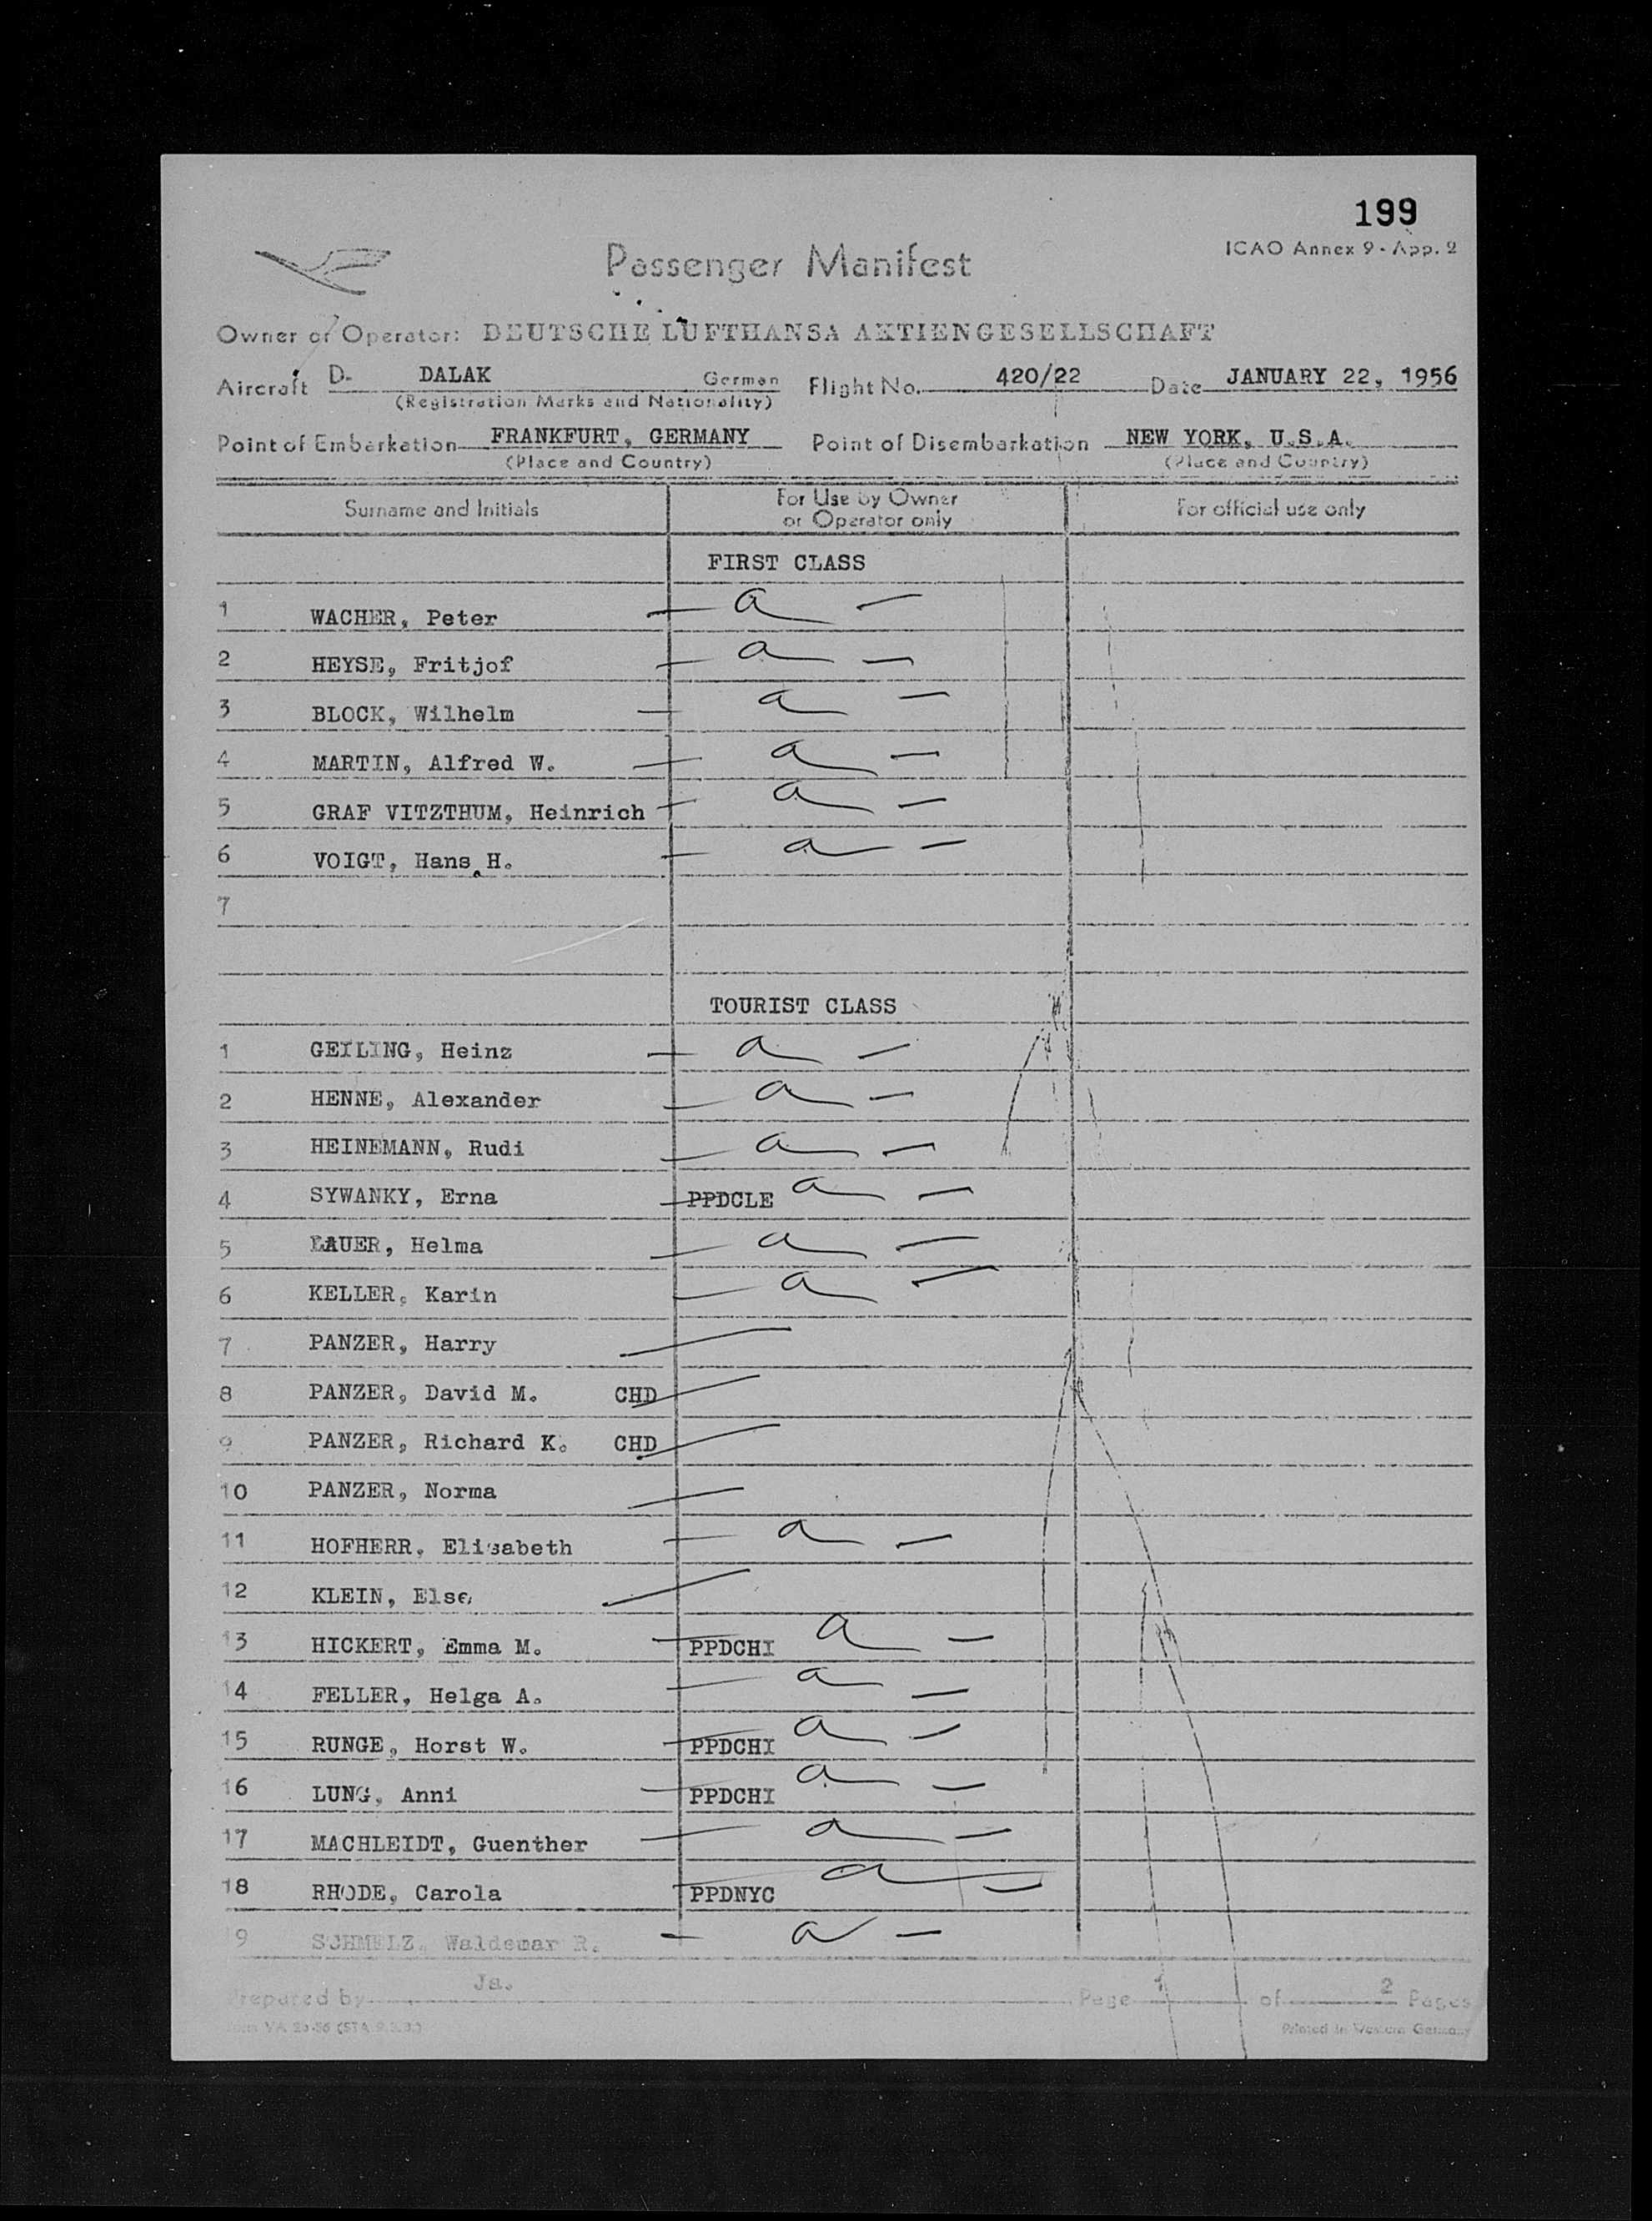 199
ICAO Annex 9 - App. 2
Passenger Manifest
Owner or Operator: DEUTSCHE LUFTHANSA AKTIENGESELLSCHAFT
Aircraft D- DALAK German Flight No. 420/22 Date JANUARY 22, 1956
(Registration Marks and Nationality)
Point of Embarkation FRANKFURT, GERMANY Point of Disembarkation NEW YORK, U.S.A.
(Place and Country) (Place and Country)
Surname and Initials For Use by Owner or Operator only For official use only
FIRST CLASS
1 WACHER, Peter a
2 HEYSE, Fritjof a
3 BLOCK, Wilhelm a
4 MARTIN, Alfred W. a
5 GRAF VITZTHUM, Heinrich a
6 VOIGT, Hans H. a
7
TOURIST CLASS
1 GEILING, Heinz a
2 HENNE, Alexander a
3 HEINEMANN, Rudi a
4 SYWANKY, Erna PPDCLE a
5 LAUER, Helma a
6 KELLER, Karin a
7 PANZER, Harry
8 PANZER, David M. CHD
9 PANZER, Richard K. CHD
10 PANZER, Norma
11 HOFHERR, Elisabeth a
12 KLEIN, Else
13 HICKERT, Emma M. PPDCHI a
14 FELLER, Helga A. a
15 RUNGE, Horst W. PPDCHI a
16 LUNG, Anni PPDCHI a
17 MACHLEIDT, Guenther a
18 RHODE, Carola PPDNYC a
9 SCHMELZ, Waldemar R. a
Prepared by Ja. Page 1 of 2 Pages
Printed in Western Germany